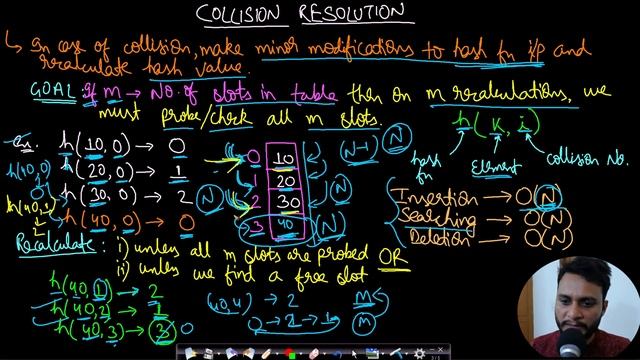 COLLISION RESOLUTION
↳ In case of collision, make minor modifications to hash fn i/p and
recalculate hash value.
GOAL: If m → No. of slots in table then on m recalculations, we
must probe/check all m slots.
h(K, i)
hash fn
Element
collision No.
Ex. h(10, 0) → 0
h(20, 0) → 1
h(30, 0) → 2
h(40, 0) → 0
h(40,0)
0
h(40,1)
2
0 10
1 20
2 30
3 40
(N-1) N
N
N
N
Insertion → O(N)
Searching → O(N)
Deletion → O(N)
Recalculate: i) unless all m slots are probed OR
ii) unless we find a free slot
h(40, 1) → 2
h(40, 2) → 1
h(40, 3) → 3 0
(40,4) → 2 m
0 → 2 → 1 m